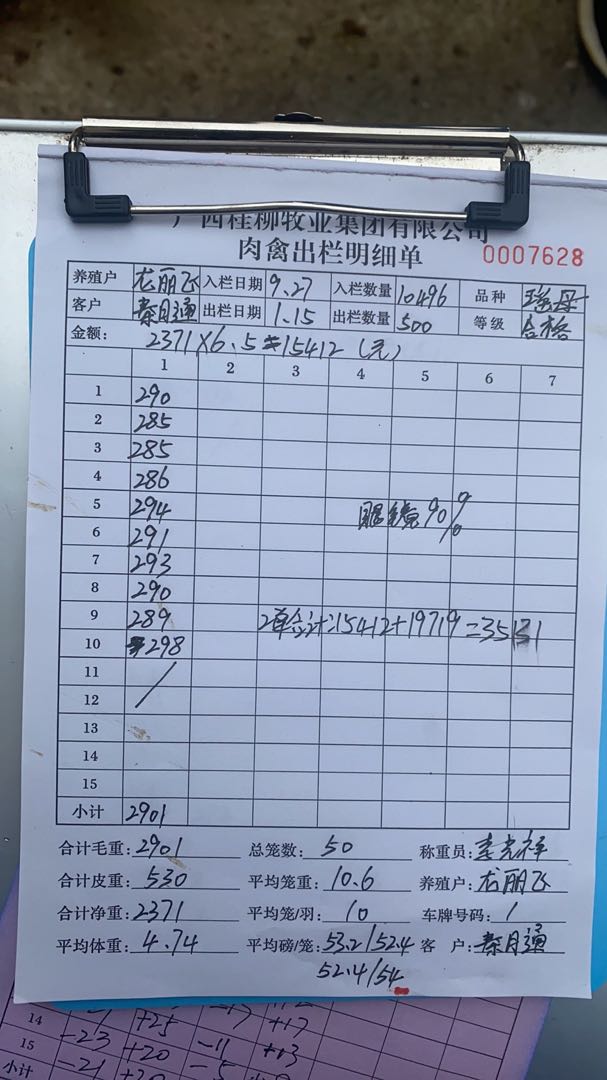 广西桂柳牧业集团有限公司
肉禽出栏明细单 0007628
养殖户 龙丽飞 入栏日期 9.27 入栏数量 10496 品种 瑶母
客户 秦月通 出栏日期 1.15 出栏数量 500 等级 合格
金额: 2371×6.5=15412(元)
1 2 3 4 5 6 7
1 290
2 285
3 285
4 286
5 294 眼镜90%
6 291
7 293
8 290
9 289 2单合计:15412+19719=35131
10 298
11
12
13
14
15
小计 2901
合计毛重: 2901 总笼数: 50 称重员:
合计皮重: 530 平均笼重: 10.6 养殖户: 龙丽飞
合计净重: 2371 平均笼/羽: 10 车牌号码: /
平均体重: 4.74 平均磅/笼: 53.2/52.4 客户: 秦月通
52.4/54
14 +25 -17 +17
15 -23 +20 -11 +13
小计 -21 +20 -5